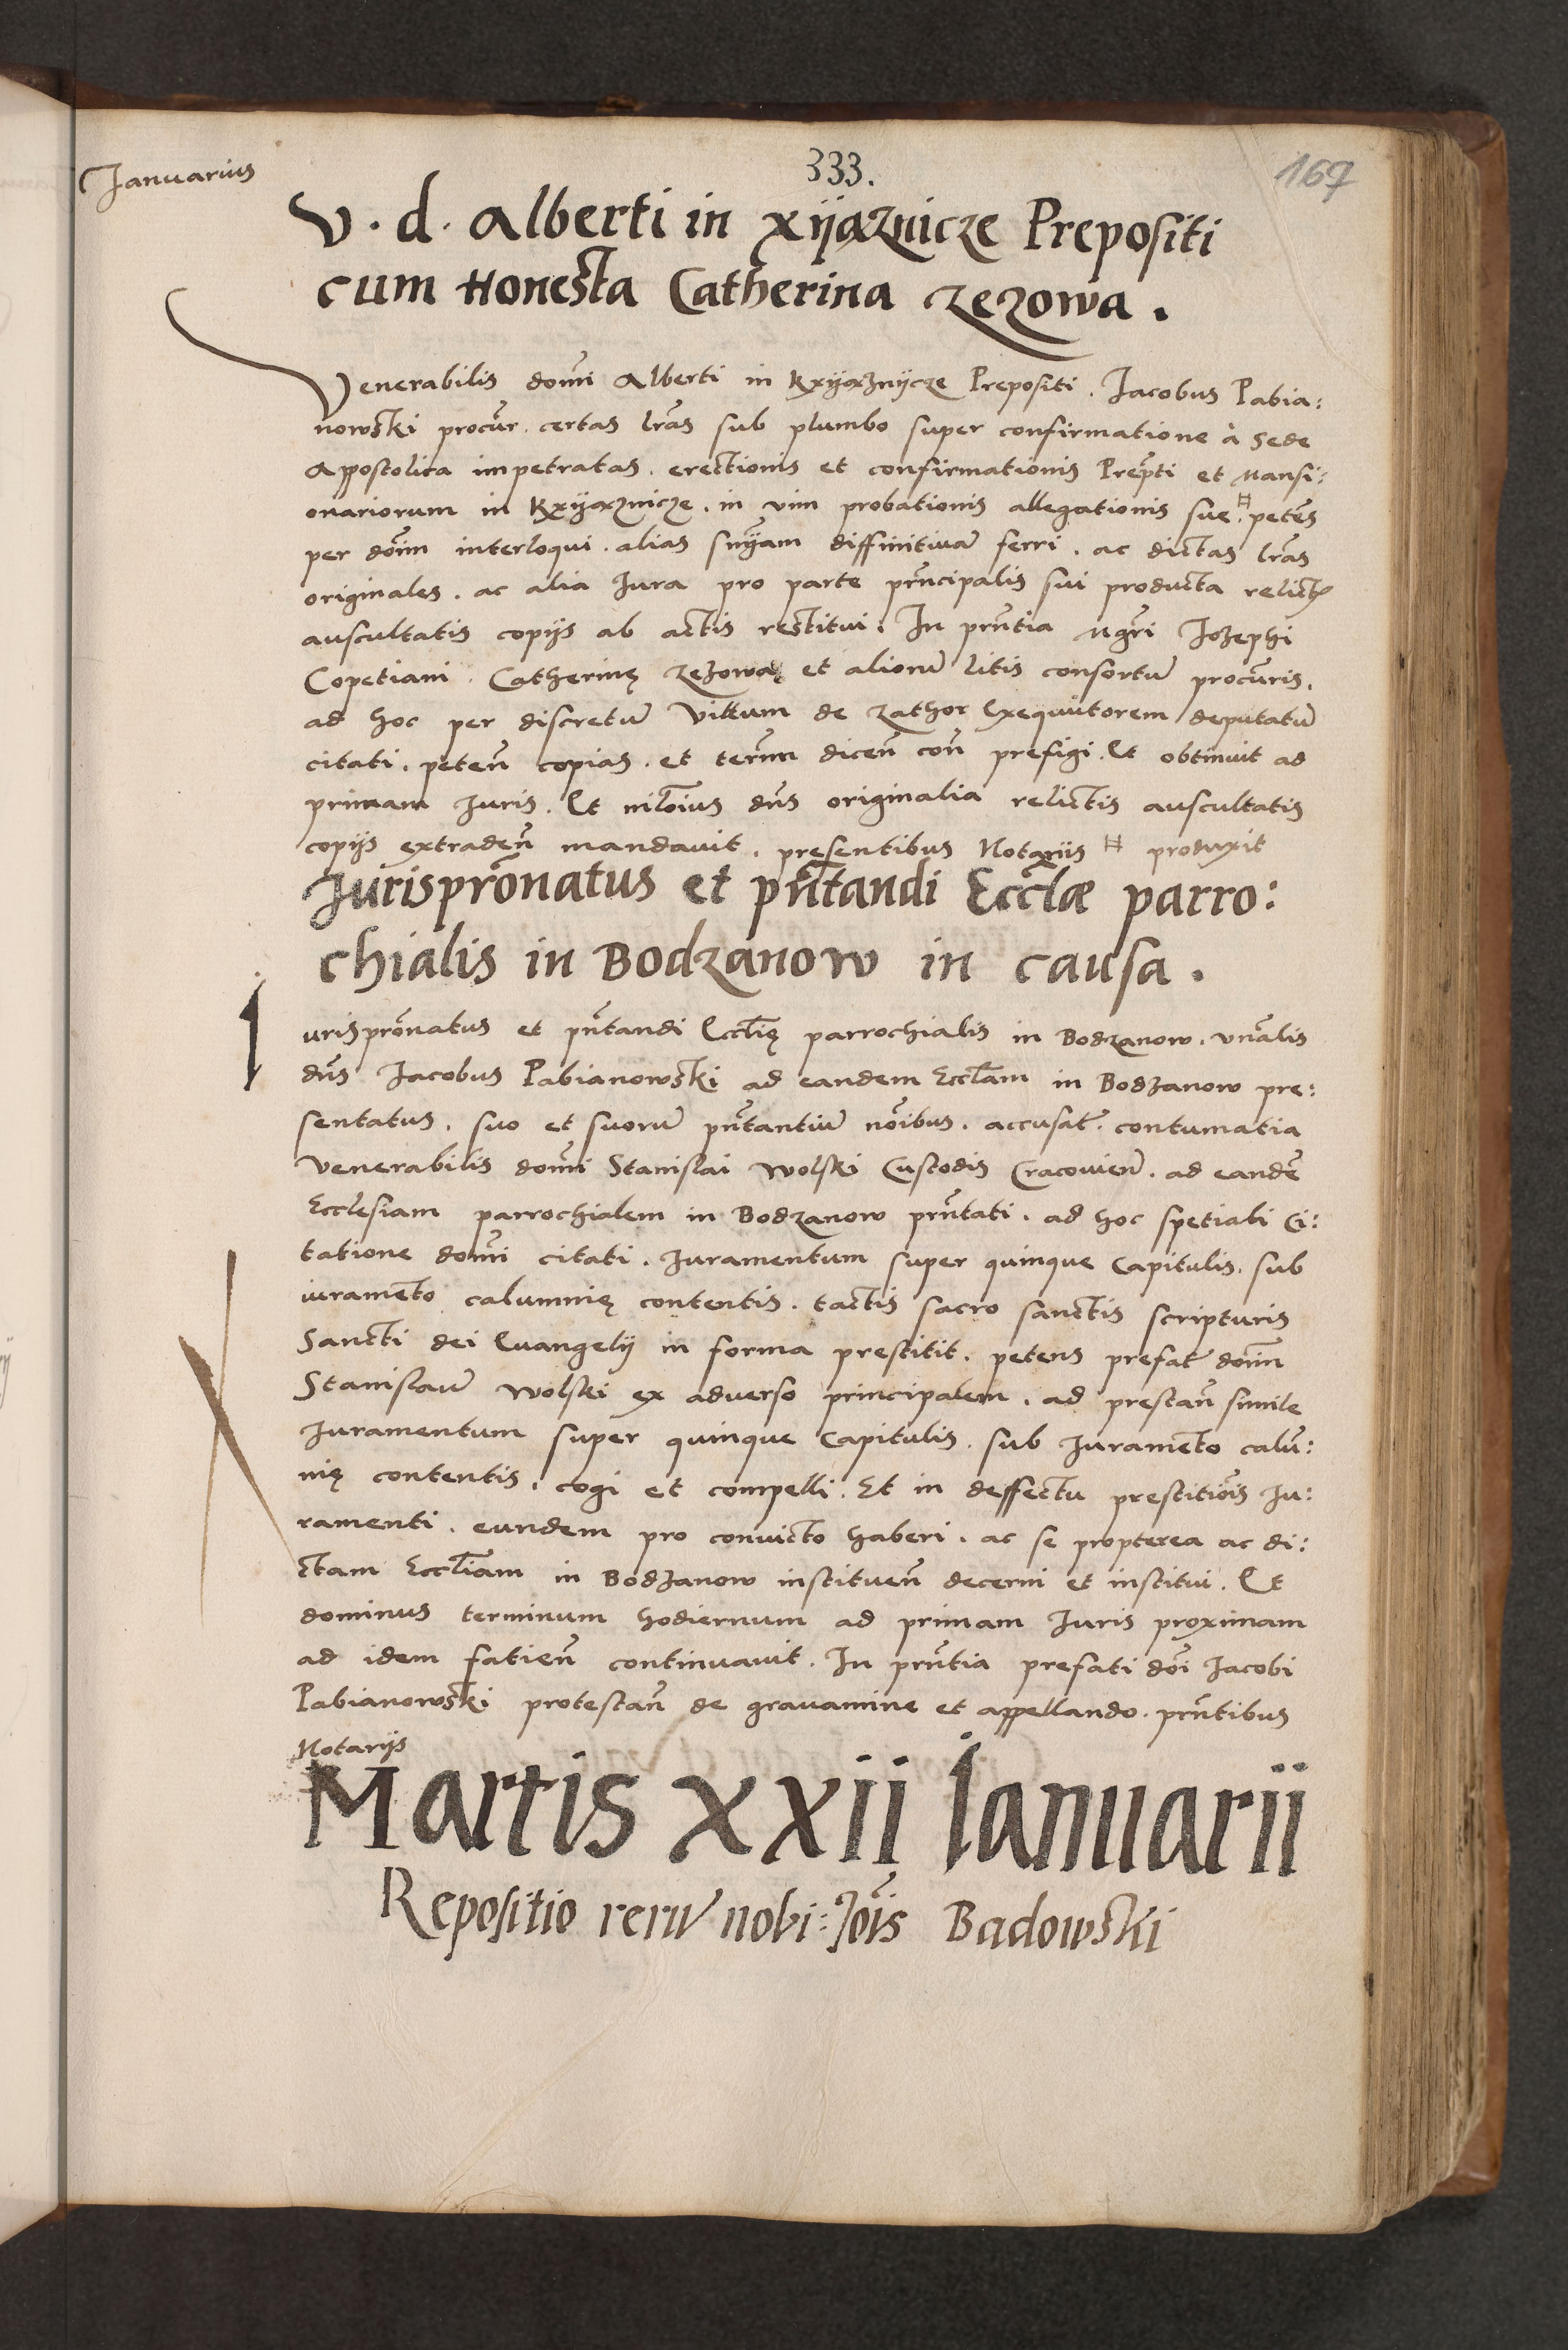 Januarius
333.
167
V. d. Alberti in Xijąznicze Prepositi
cum Honesta Catherina Zezowa.
Venerabilis domĩ Alberti in Kxijąznijcze Prepositi. Jacobus Pabia:
nowski procũr. certas lr̃as sub plumbo super confirmatione à Sede
Appostolica impetratas. erectionis et confirmationis Prep̃ti et Mansi:
onariorum in Kxijąznicze. in vim probationis allegationis sue. # petẽs
per dom̃ interloqui. alias sn̄yam diffinitiuã ferri. ac dictas lr̃as
originales. ac alia Jura pro parte prñcipalis sui producta relict
auscultatis copijs ab actis restitui. In prñtia Mgr̃i Jozephi
Copetiani. Catherinę Zezowa et aliorũ litis consortũ procũris.
ad hoc per discretũ Vitkum de Zathor Exequutorem deputatũ
citati. petẽn copias. et term̃ dicen̄ con̄ prefigi. Et obtinuit ad
primam Juris. Et nilo͂ius dn̄s originalia relictis auscultatis
copijs extraden̄ mandavit. presentibus Notarijs # produxit
Jurispro͂natus et pn̄tandi Eccl̃æ parro:
chialis in Bodzanow in causa.
Jurispro͂natus et pn̄tandi Eccl̃ię parrochialis in Bodzanow. vn̄alis
dn̄s Jacobus Pabianowski ad eandem Eccl̃iam in Bodzanow pre:
sentatus. suo et suorũ pn̄tantiũ no͂ibus. accusat̃. contumatia
Venerabilis dom̃i Stanislai Wolski Custodis Cracouien̄. ad eandẽ
Ecclesiam parrochialem in Bodzanow prñtati. ad hoc spetiali Ci:
tatione dom̃i citati. Juramentum super quinque Capitulis. sub
iuramẽto calumnię contentis. tactis sacro sanctis scripturis
Sancti dei Euangelij in forma prestitit. petens prefat̃ dom̃
Stanislaũ Wolski ex adverso principalem. ad prestan̄ simile
Juramentum super quinque Capitulis. sub Juramẽto calũ:
nię contentis. cogi et compelli. Et in deffectu prestitio͂is Ju:
ramenti. eundem pro convicto haberi. ac se propterea ac di:
ctam Eccl̃iam in Bodzanow instituen̄ decerni et institui. Et
dominus terminum hodiernum ad primam Juris proximam
ad idem fatien̄ continuauit. In prñtia prefati do͂i Jacobi
Pabianowski protestan̄ de grauamine et appellando. prñtibus
Notarijs
Martis XXII Ianuarii
Repositio rerũ nobi: Jo͂is Badowski